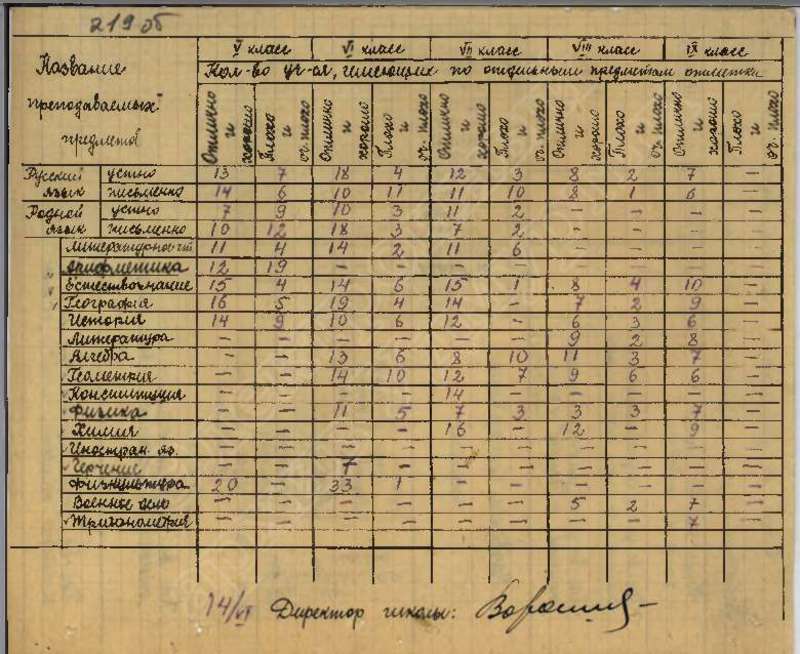 219 об
V класс VI класс VII класс VIII класс IX класс
Название преподаваемых предметов
Кол-во уч-ся, имеющих по отдельным предметам отметки
Отлично и хорошо Плохо и оч. плохо Отлично и хорошо Плохо и оч. плохо Отлично и хорошо Плохо и оч. плохо Отлично и хорошо Плохо и оч. плохо Отлично и хорошо Плохо и оч. плохо
Русский язык устно 13 7 18 4 12 3 8 2 7 —
письменно 14 6 10 11 11 10 8 1 6 —
Родной язык устно 7 9 10 3 11 2 — — — —
письменно 10 12 18 3 7 2 — — — —
Литературное чт. 11 4 14 2 11 6 — — — —
Арифметика 12 19 — — — — — — — —
Естествознание 15 4 14 6 15 1 8 4 10 —
География 16 5 19 4 14 — 7 2 9 —
История 14 9 10 6 12 — 6 3 6 —
Литература — — — — — — 9 2 8 —
Алгебра — — 13 6 8 10 11 3 7 —
Геометрия — — 14 10 12 7 9 6 6 —
Конституция — — — — 14 — — — — —
Физика — — 11 5 7 3 3 3 7 —
Химия — — — — 16 — 12 — 9 —
Иностран. яз. — — — — — — — — — —
Черчение — — 7 — — — — — — —
Физкультура 20 — 33 1 — — — — — —
Военное дело — — — — — — 5 2 7 —
Тригонометрия — — — — — — — — 7 —
14/VI Директор школы: